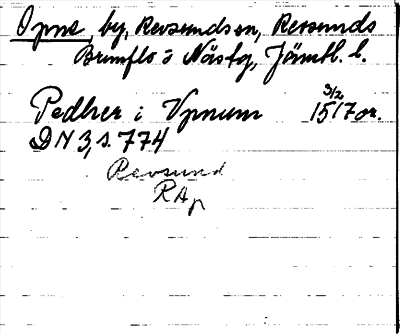 Opne, by, Revsunds sn, Revsunds
Brunflo o Näs tg, Jämtl. l.
Pedher i Vpnum 3/2 1517 or.
DN 3, s. 774
Revsund
RAp